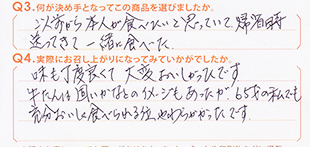 Q3.何が決め手となってこの商品を選びましたか。
以前から本人が食べたいと思っていて帰省時
送ってきて一緒に食べた.
Q4.実際にお召し上がりになってみていかがでしたか。
味も丁度良くて大変おいしかったです
牛たんは固いかなとのイメージもあったが、65才の私でも
充分おいしく食べられる位やわらかかったです.